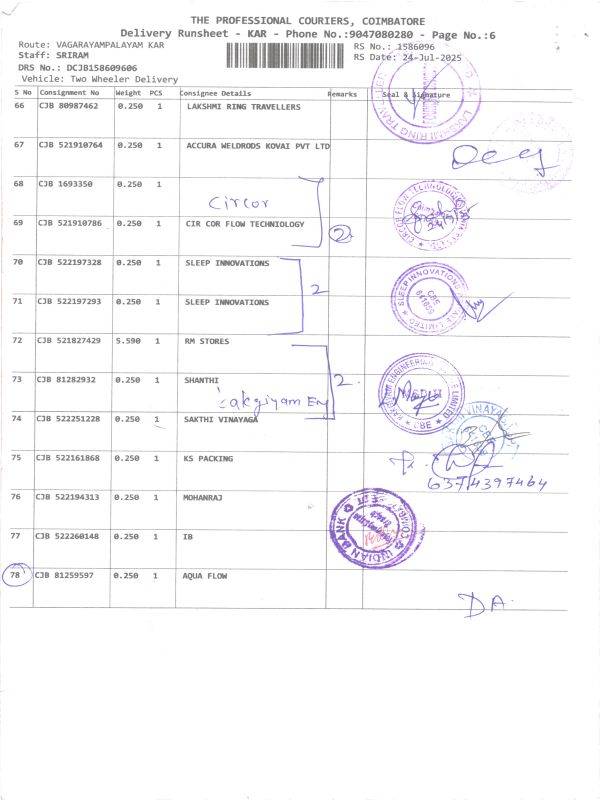 THE PROFESSIONAL COURIERS, COIMBATORE
Delivery Runsheet - KAR - Phone No.:9047080280 - Page No.:6
Route: VAGARAYAMPALAYAM KAR
RS No.: 1586096
Staff: SRIRAM
RS Date: 24-Jul-2025
DRS No.: DCJB158609606
Vehicle: Two Wheeler Delivery
S No Consignment No Weight PCS Consignee Details Remarks Seal & Signature
66 CJB 80987462 0.250 1 LAKSHMI RING TRAVELLERS
LAKSHMI RING TRAVELLERS
67 CJB 521910764 0.250 1 ACCURA WELDRODS KOVAI PVT LTD
68 CJB 1693350 0.250 1
Circor
69 CJB 521910786 0.250 1 CIR COR FLOW TECHNIOLOGY
2
CIRCOR FLOW TECHNOLOGIES
70 CJB 522197328 0.250 1 SLEEP INNOVATIONS
71 CJB 522197293 0.250 1 SLEEP INNOVATIONS
2
SLEEP INNOVATIONS
LIMITED
CBE
641659
72 CJB 521827429 5.590 1 RM STORES
73 CJB 81282932 0.250 1 SHANTHI
2
ENGINEERING
LIMITED
CBE
74 CJB 522251228 0.250 1 SAKTHI VINAYAGA
VINAYAGA
75 CJB 522161868 0.250 1 KS PACKING
6374397464
76 CJB 522194313 0.250 1 MOHANRAJ
77 CJB 522260148 0.250 1 IB
INDIAN BANK
78 CJB 81259597 0.250 1 AQUA FLOW
DA